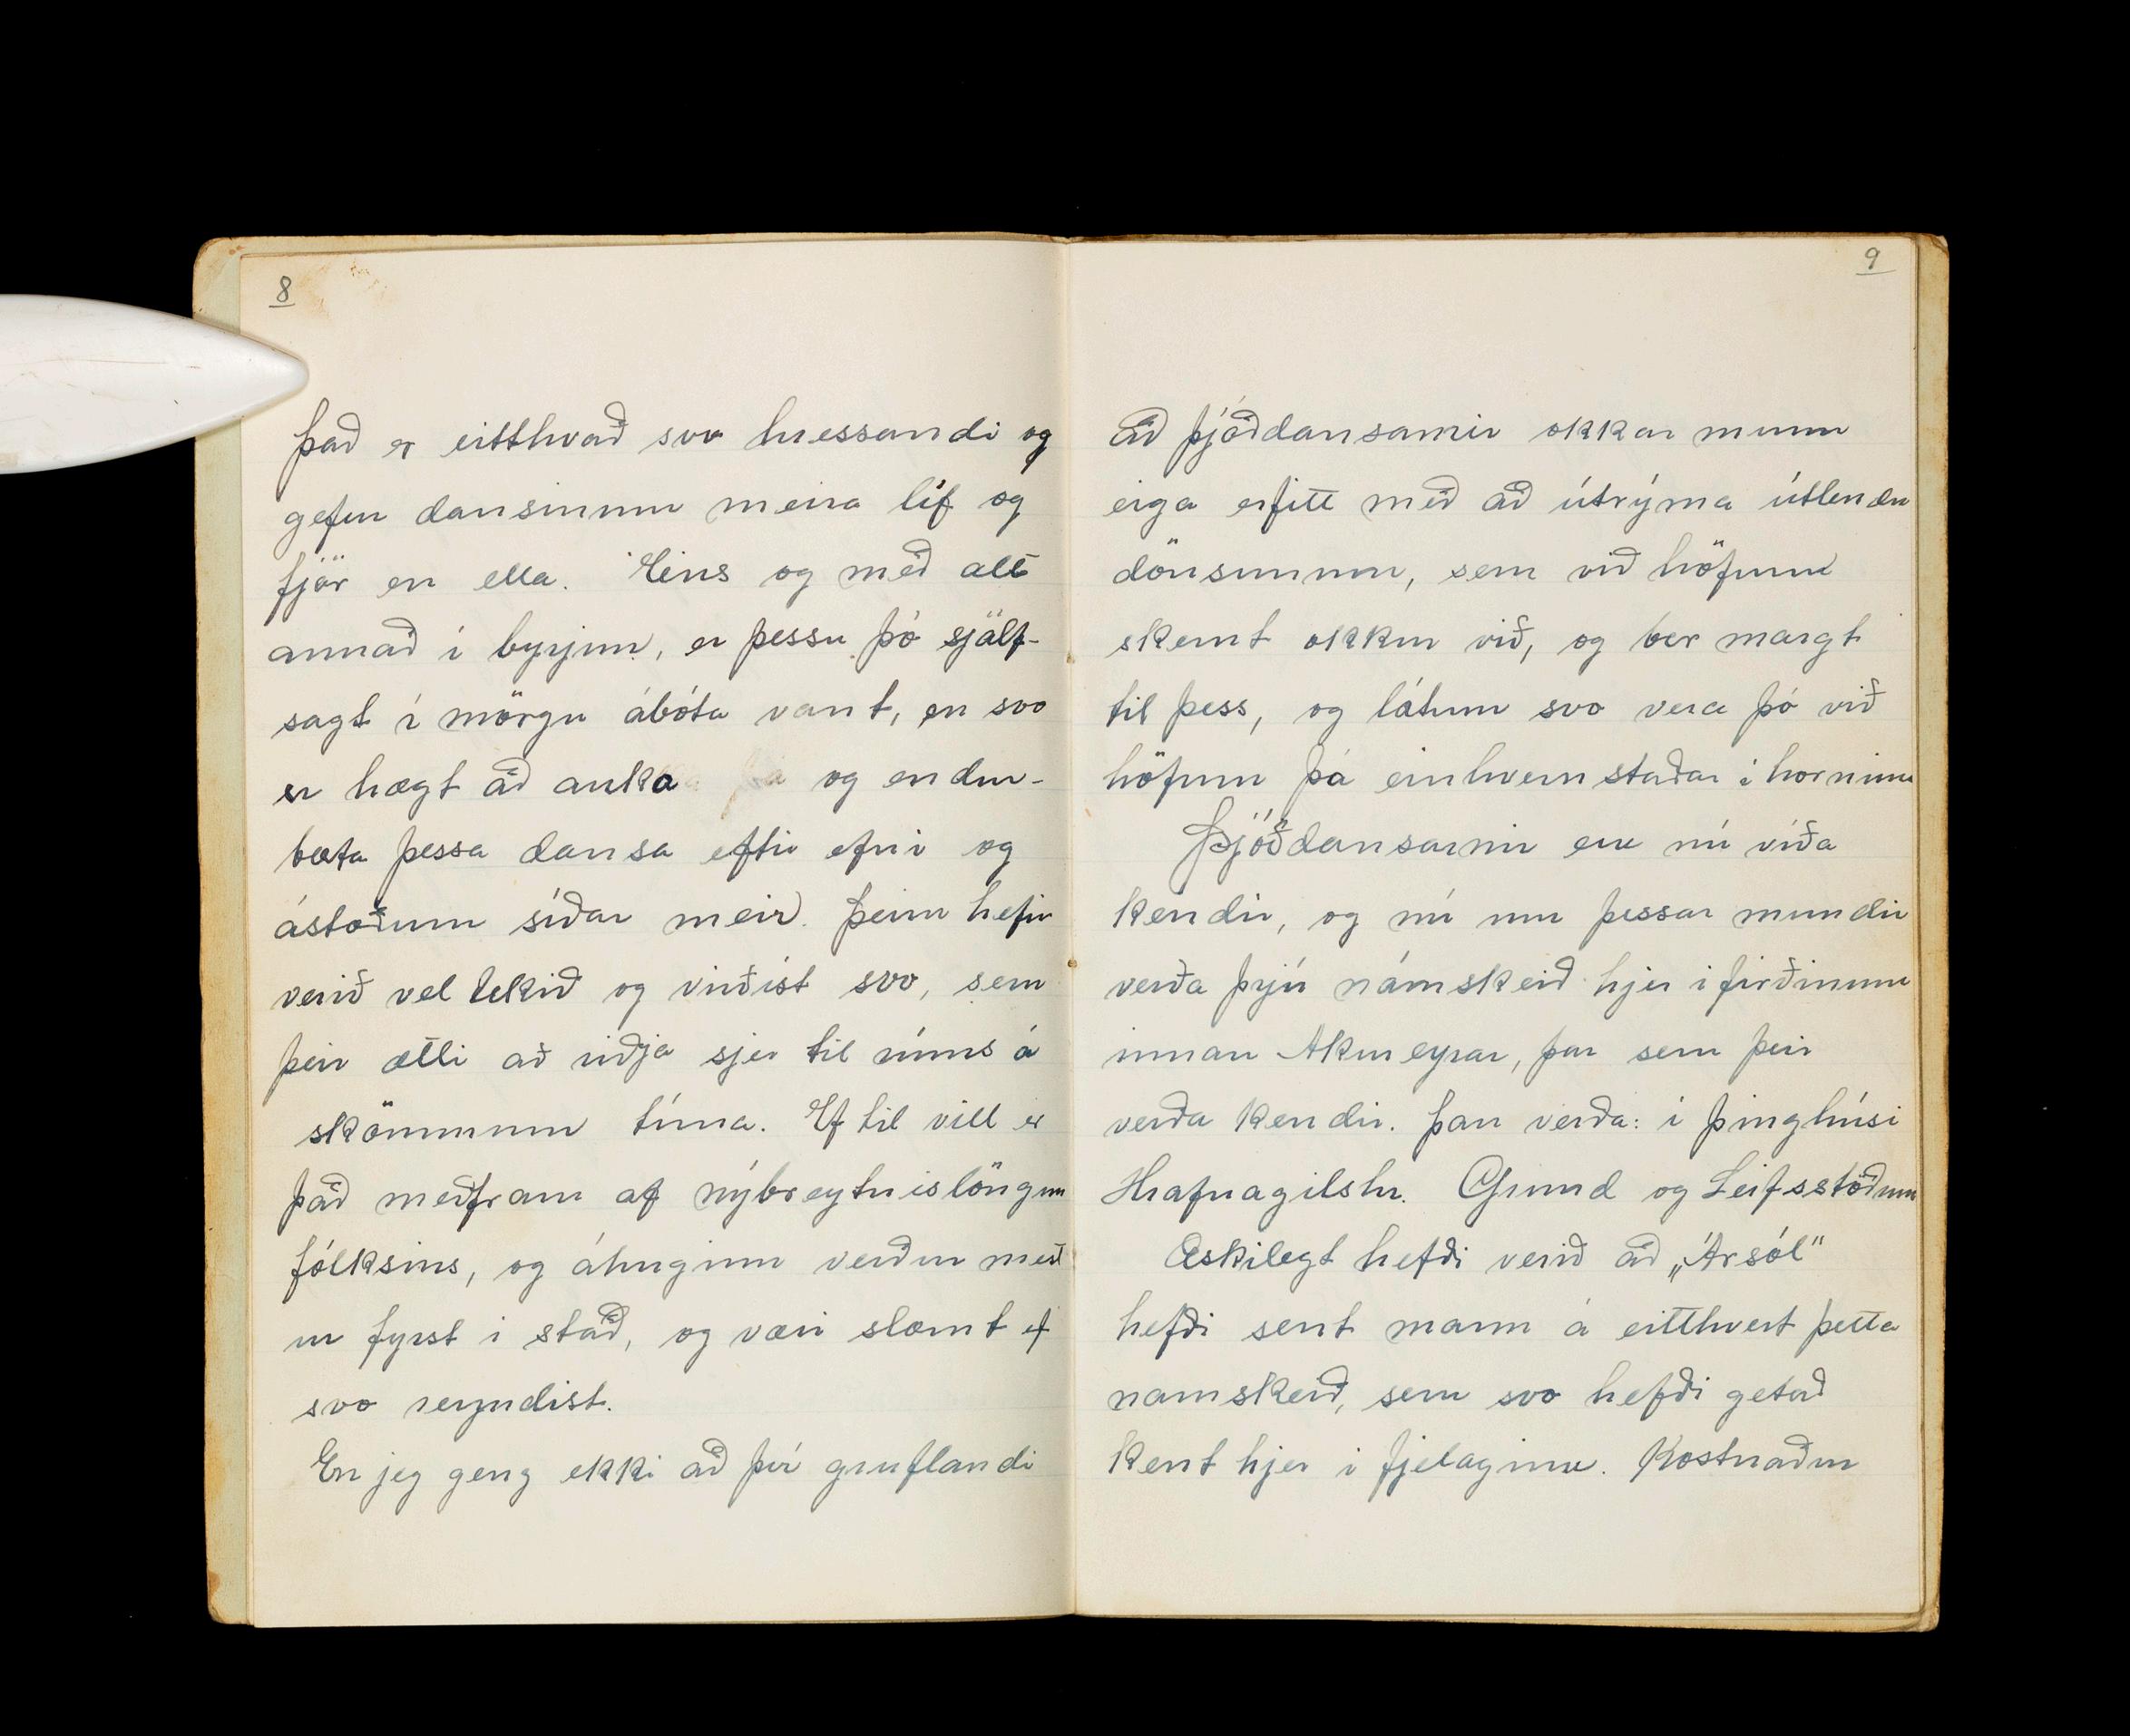 8
það er eitthvað svo hressandi og
gefur dansinum meira líf og
fjör en ella. Eins og með allt
annað í byrjun, er þessu þó sjálf-
sagt í mörgu ábóta vant, en svo
er hægt að auka og endur-
bæta þessa dansa eftir efni og
ástæðum síðar meir. Þeim hefir
verið vel tekið og virðist svo, sem
þeir ætli að riðja sjer til rúms á
skömmum tíma. Ef til vill er
það meðfram af nýbreytnislöngun
fólksins, og áhuginn verður mest
ur fyrst í stað, og væri slæmt ef
svo reyndist.
En jeg geng ekki að því gruflandi
9
að þjóðdansarnir okkar munu
eiga erfitt með að útrýma útlendu
dönsunum, sem við höfum
skemt okkur við, og ber margt
til þess, og látum svo vera þó við
höfum þá einhvernstaðar í horninu
Þjóðdansarnir eru nú víða
kendir, og nú um þessar mundir
verða þrjú námskeið hjer í firðinum
innan Akureyrar, þar sem þeir
verða kendir. Þau verða: í þinghúsi
Hrafnagilshr. Grund og Leifsstöðum
Æskilegt hefði verið að „Ársól"
hefði sent mann á eitthvert þetta
namskeið, sem svo hefði getað
kent hjer í fjelaginu. Kostnaður